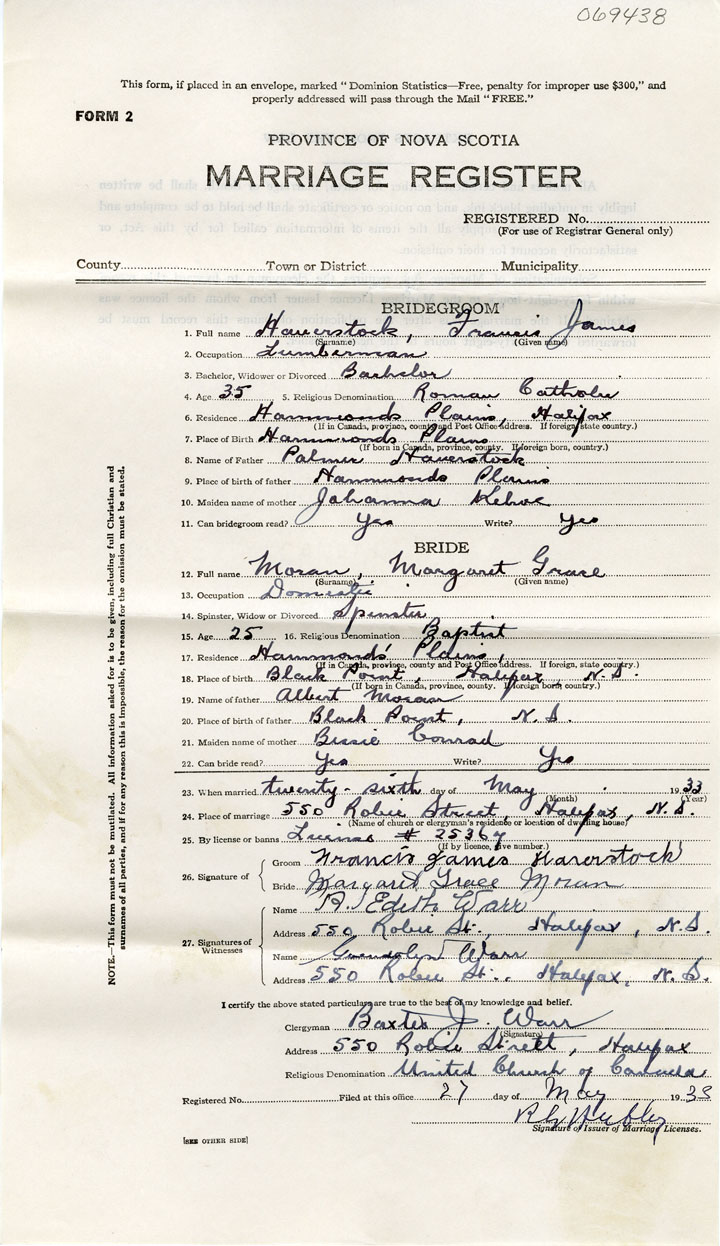 069438
This form, if placed in an envelope, marked "Dominion Statistics—Free, penalty for improper use $300," and
properly addressed will pass through the Mail "FREE."
FORM 2
PROVINCE OF NOVA SCOTIA
MARRIAGE REGISTER
REGISTERED No.
(For use of Registrar General only)
County Town or District Municipality
BRIDEGROOM
1. Full name Haverstock, Francis James
(Surname) (Given name)
2. Occupation Lumberman
3. Bachelor, Widower or Divorced Bachelor
4. Age 35 5. Religious Denomination Roman Catholic
6. Residence Hammonds Plains, Halifax
(If in Canada, province, county and Post Office address. If foreign, state country.)
7. Place of Birth Hammonds Plains
(If born in Canada, province, county. If foreign born, country.)
8. Name of Father Palmer Haverstock
9. Place of birth of father Hammonds Plains
10. Maiden name of mother Johanna Kehoe
11. Can bridegroom read? Yes Write? Yes
BRIDE
12. Full name Moran, Margaret Grace
(Surname) (Given name)
13. Occupation Domestic
14. Spinster, Widow or Divorced Spinster
15. Age 25 16. Religious Denomination Baptist
17. Residence Hammonds' Plains,
(If in Canada, province, county and Post Office address. If foreign, state country.)
18. Place of birth Black Point, Halifax, N.S.
(If born in Canada, province, county. If foreign born, country.)
19. Name of father Albert Moran
20. Place of birth of father Black Point, N.S.
21. Maiden name of mother Bessie Conrad
22. Can bride read? Yes Write? Yes
23. When married twenty-sixth day of May 1933
(Month) (Year)
24. Place of marriage 550 Robie Street, Halifax, N.S.
(Name of church or clergyman's residence or location of dwelling house)
25. By license or banns License # 25367
(If by licence, give number.)
26. Signature of
Groom Francis James Haverstock
Bride Margaret Grace Moran
27. Signatures of Witnesses
Name A. Edith Warr
Address 550 Robie St., Halifax, N.S.
Name Gwendolyn Warr
Address 550 Robie St., Halifax, N.S.
I certify the above stated particulars are true to the best of my knowledge and belief.
Clergyman Baxter J. Warr
(Signature)
Address 550 Robie Street, Halifax
Religious Denomination United Church of Canada
Registered No. Filed at this office 27 day of May 1933
Signature of Issuer of Marriage Licenses.
[SEE OTHER SIDE]
NOTE.—This form must not be mutilated. All information asked for is to be given, including full Christian and
surnames of all parties, and if for any reason this is impossible, the reason for the omission must be stated.